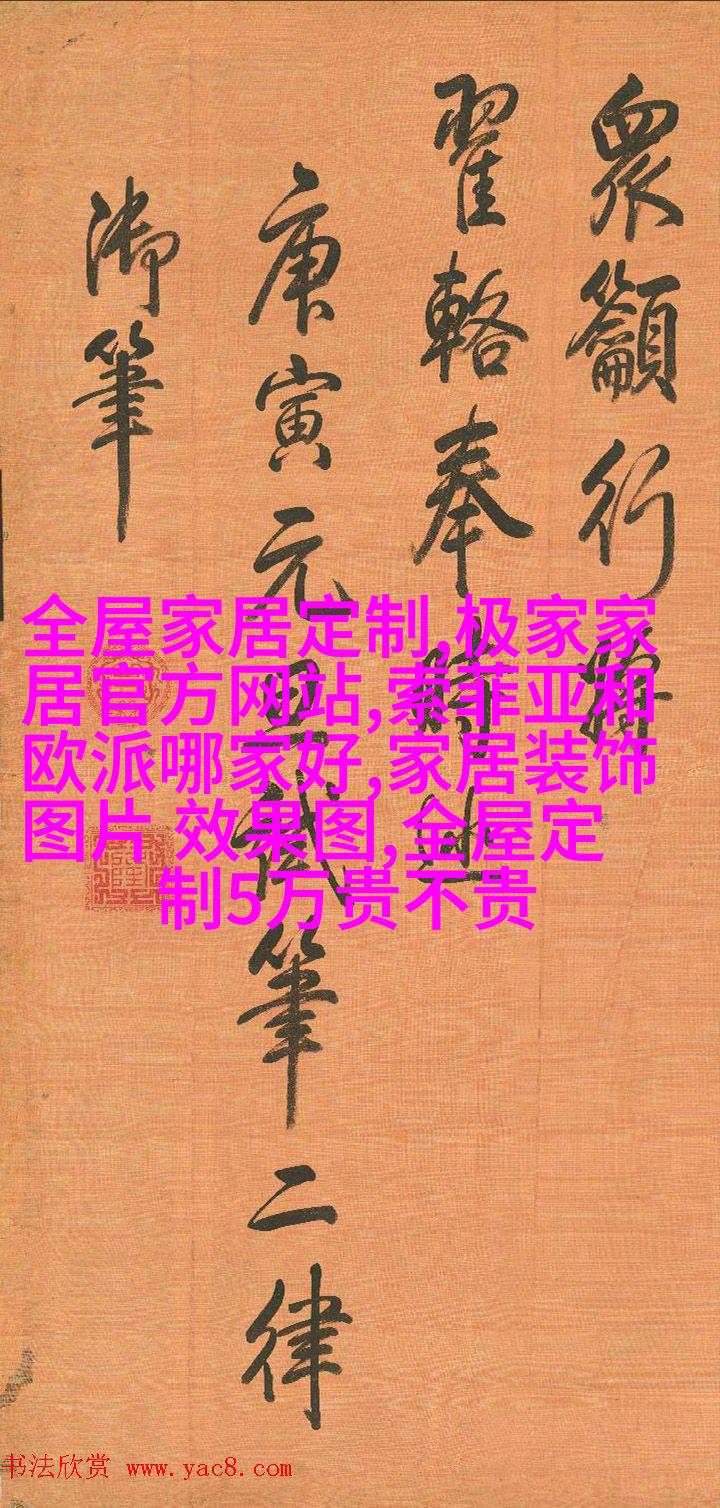 眾籲行
翟輅奉時巡
庚寅元旦試筆二律
御筆
全屋家居定制,极家家
居官方网站,索菲亚和
欧派哪家好,家居装饰
图片 效果图,全屋定
制5万贵不贵
书法欣赏 www.yac8.com